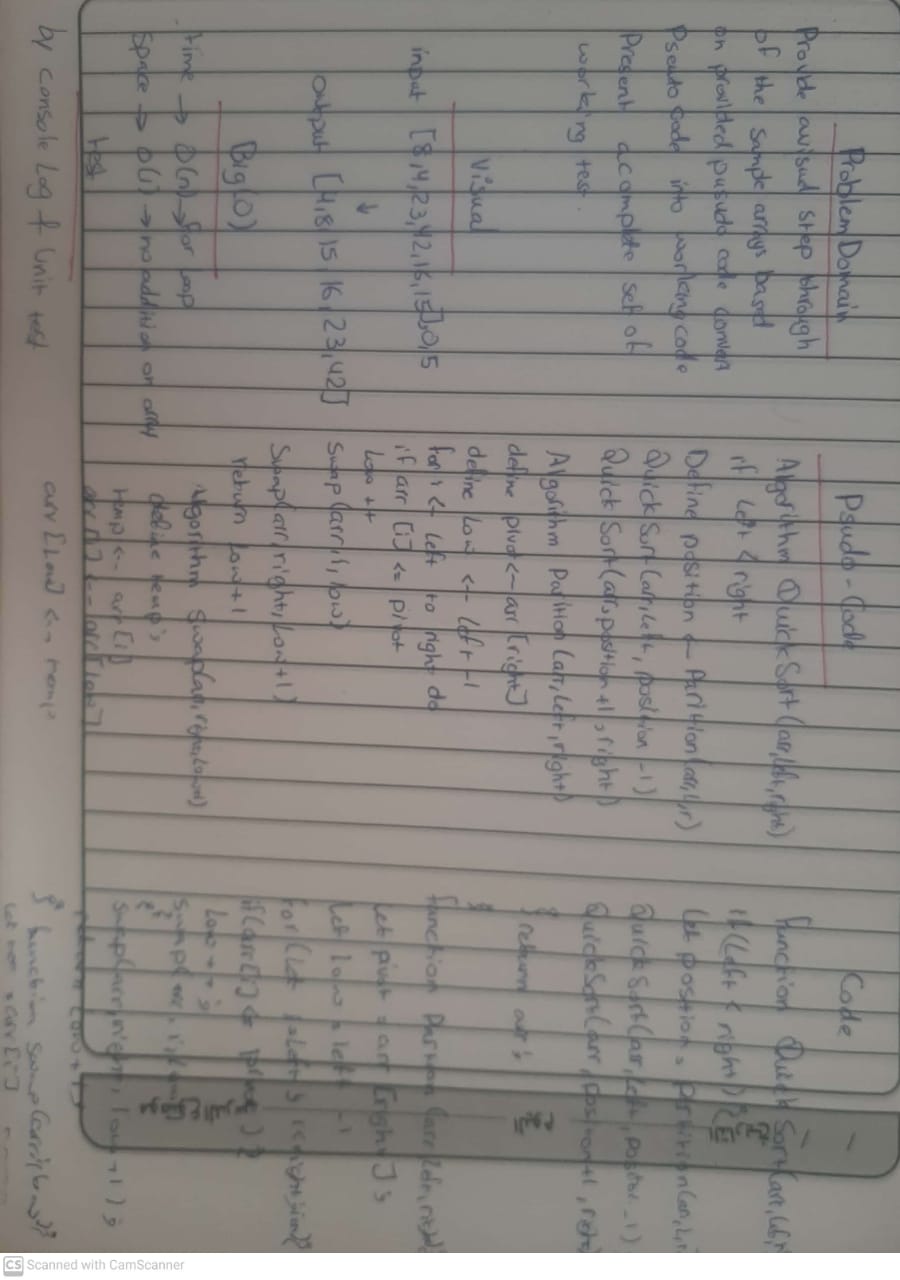 Problem Domain
Provide a visual step through
of the sample arrays based
on provided pusudo code convert
Pseudo code into working code
Present a complete set of
working test.
Visual
input [8,4,23,42,16,15],0,5
↓
Output [4,8,15,16,23,42]
Big(O)
- time → O(n) → for loop
Space → O(1) → no addition on array
test
by console Log & Unit test
Psudo-Code
Algorithm QuickSort(arr,left,right)
if left < right
Define position <- Parition(arr,l,r)
QuickSort(arr,left,position-1)
QuickSort(arr,position+1,right)
Algorithm Parition(arr,left,right)
define pivot <-- arr[right]
define Low <-- left-1
for i <- left to right do
if arr [i] <= pivot
Low ++
Swap(arr,i,low)
Swap(arr,right,Low+1)
return Low+1
Algorithm Swap(arr,right,Low+1)
define temp;
temp <-- arr[i]
arr[i] <-- arr[low]
arr[Low] <-- temp
Code
function Quick Sort(arr,left,
if(left < right){
let position =
QuickSort(arr,left,position-1)
QuickSort(arr,position+1,right
} return arr;
}
function
let pivot = arr [right];
Let low = left -1
for(Let i=left;
if(arr[i] <= pivot){
Low++;
Swap(arr,i,low)
}}
swap(arr,right,low+1);
return Low+1
} function swap(arr,i,low){
arr[i]
CS Scanned with CamScanner